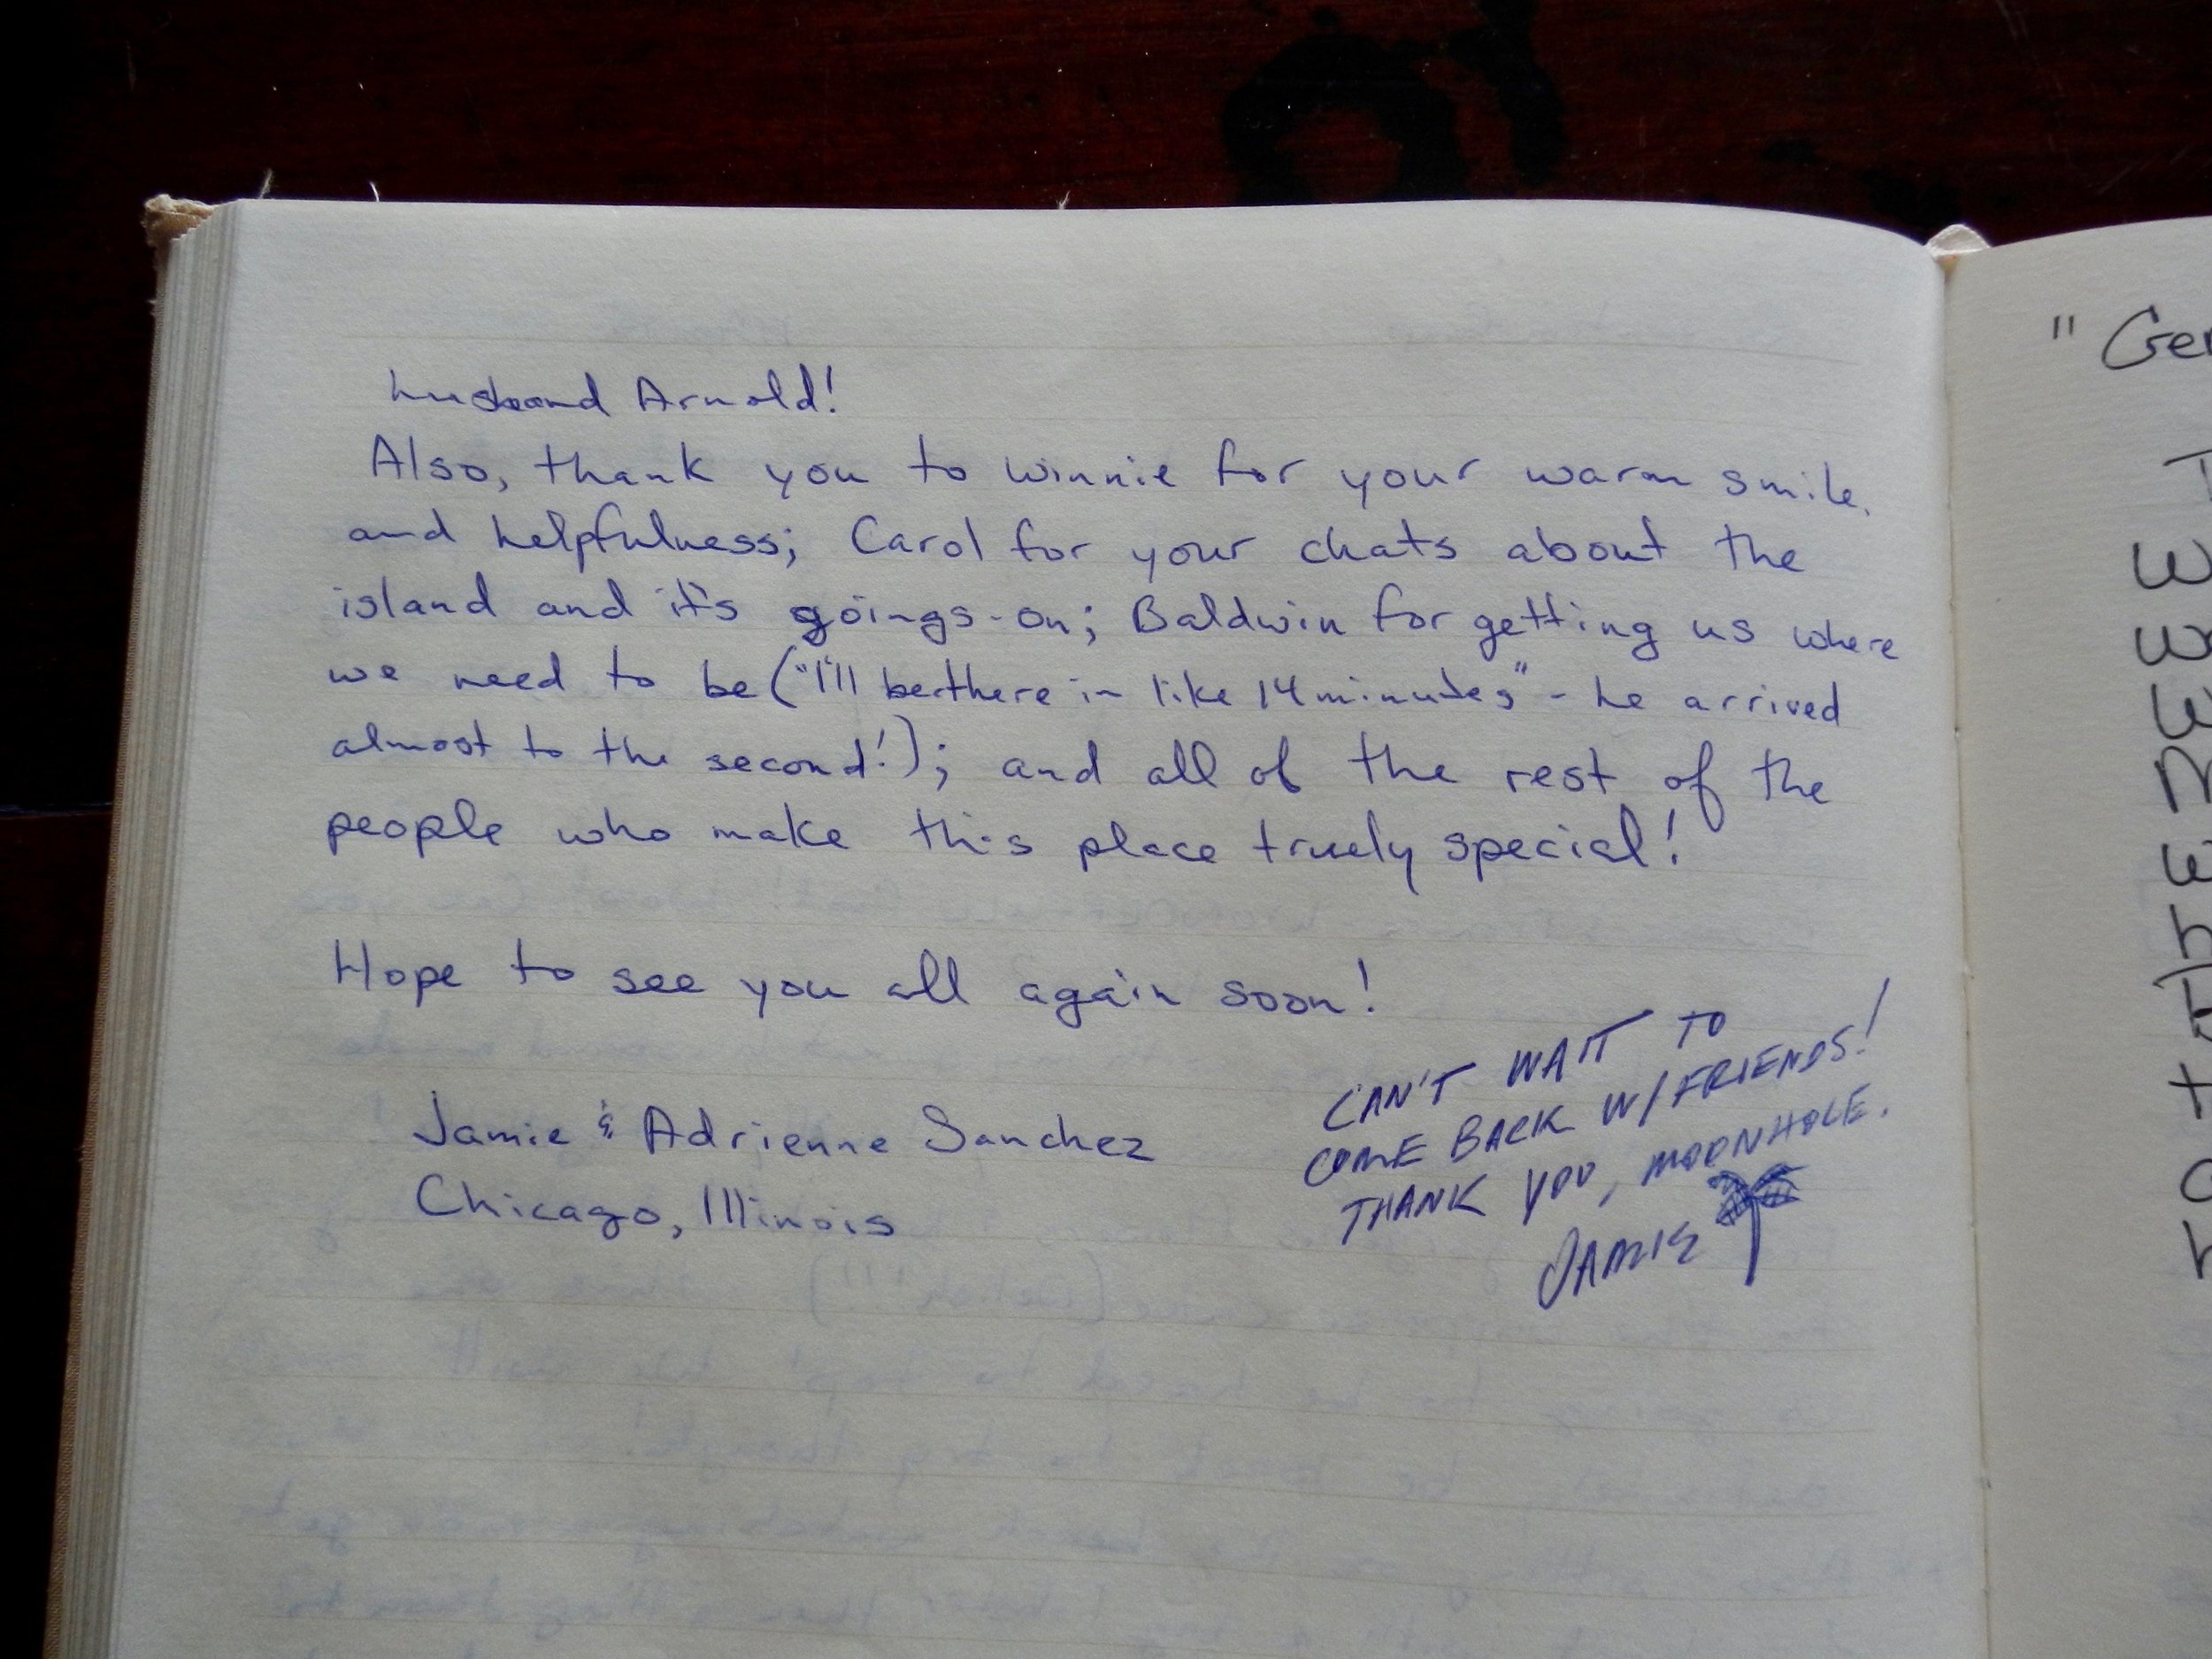 husband Arnold!
Also, thank you to Winnie for your warm smile.
and helpfulness; Carol for your chats about the
island and it's goings-on; Baldwin for getting us where
we need to be ("I'll be there in like 14 minutes," - he arrived
almost to the second!); and all of the rest of the
people who make this place truely special!
Hope to see you all again soon!
Jamie & Adrienne Sanchez
Chicago, Illinois
CAN'T WAIT TO
COME BACK W/ FRIENDS!
THANK YOU, MOONHOLE.
JAMIE